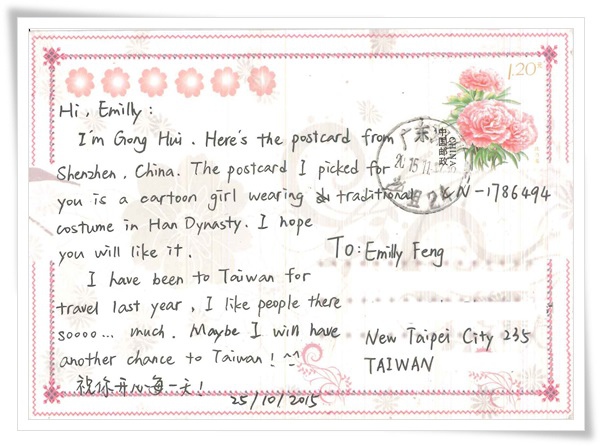 1.20元
中国邮政
CHINA
广东
2015.11
Hi, Emilly:
I'm Gong Hui. Here's the postcard from
Shenzhen, China. The postcard I picked for
you is a cartoon girl wearing traditional
costume in Han Dynasty. I hope
you will like it.
I have been to Taiwan for
travel last year, I like people there
soooo... much. Maybe I will have
another chance to Taiwan! ^^
祝你开心每一天!
25/10/2015
CN-1786494
To: Emilly Feng
New Taipei City 235
TAIWAN